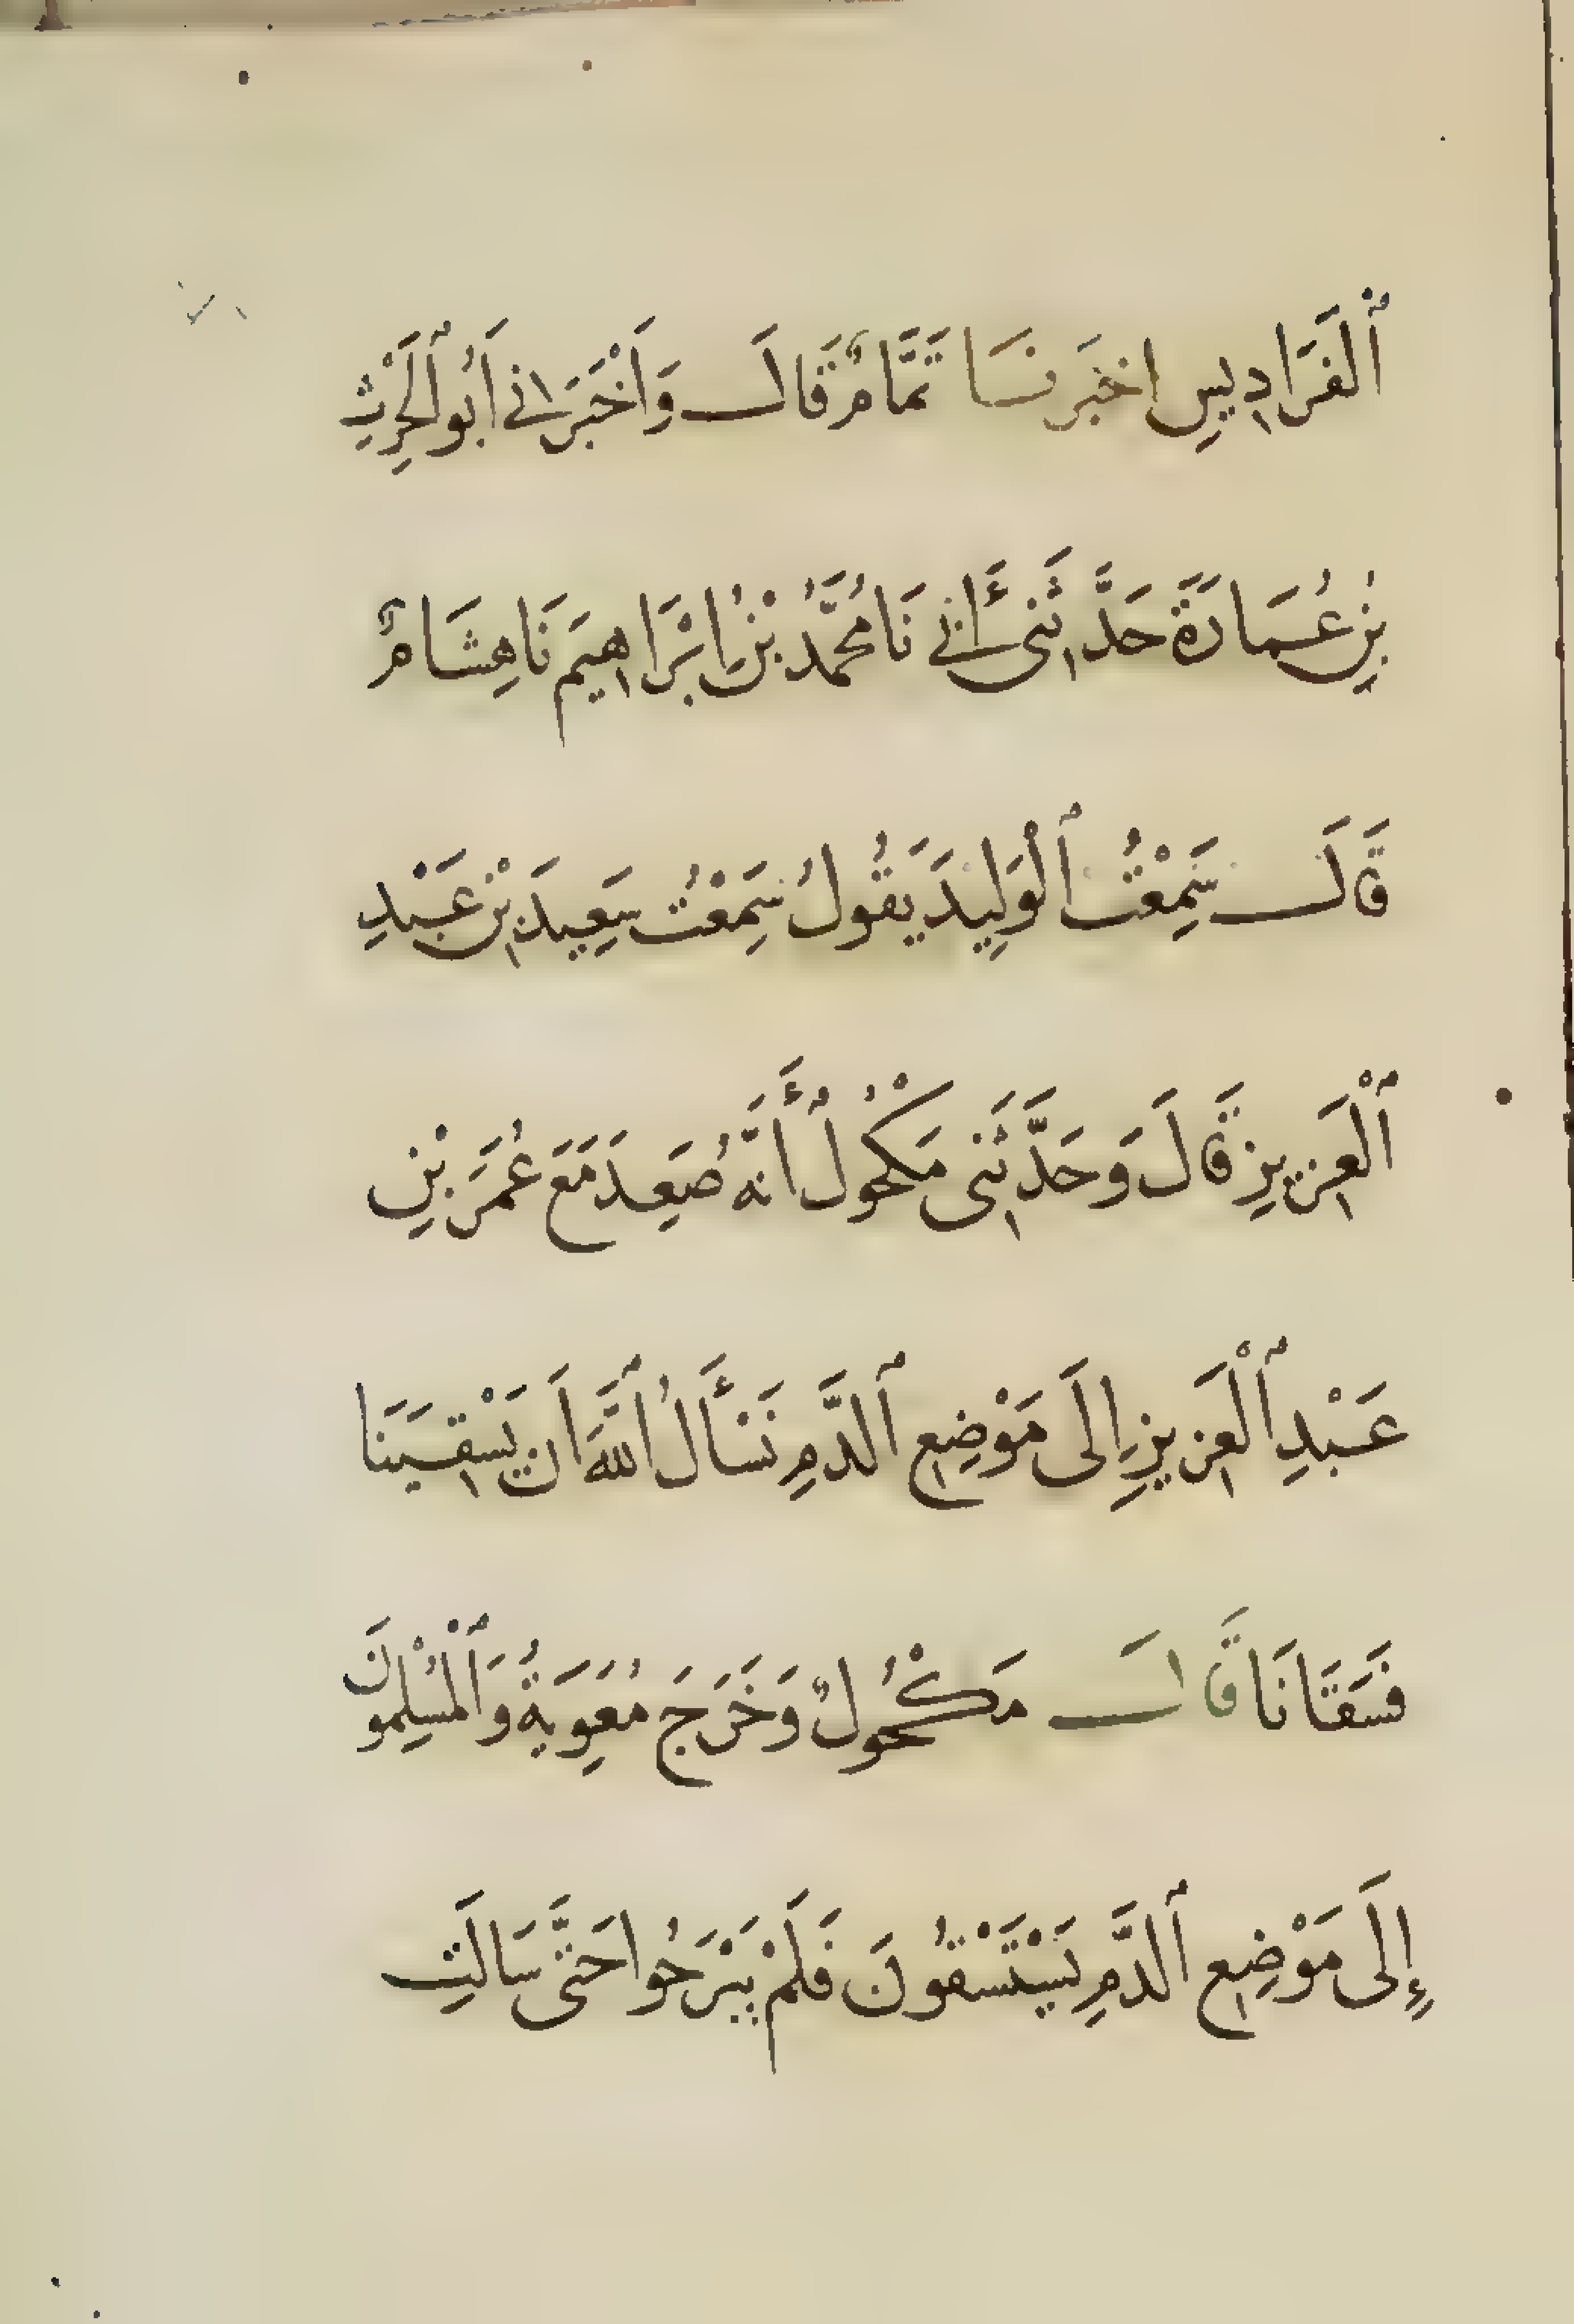 ٱلْفَرَادِيسِ اخبَرنَا تَمَّامٌ قَالَ وَأَخْبَرَانى أَبُو ٱلحَرْثِ
بْنِ عُمَارَةَ حَدَّثَنى أَبى نَا مُحَمَّدُ بْنُ إِبْرَاهِيمَ نَا هِشَامٌ
قَالَ سَمِعْتُ ٱلْوَلِيدَ يَقُولُ سَمِعْتُ سَعِيدَ بْنَ عَبْدِ
ٱلْعَزِيزِ قَالَ وَحَدَّثَنى مَكْحُولٌ أَنَّهُ صَعِدَ مَعَ عُمَرَ بْنِ
عَبْدِ ٱلْعَزِيزِ إِلَى مَوْضِعِ ٱلدَّمِ نَسْأَلُ ٱللَّهَ أَن يَسْقِيَنَا
فَسَقَانَا قَالَ مَكْحُولٌ وَخَرَجَ مُعَوِيَةُ وَٱلْمُسْلِمُونَ
إِلَى مَوْضِعِ ٱلدَّمِ يَسْتَسْقُونَ فَلَمْ يَبْرَحُوا حَتَّى سَالَتِ